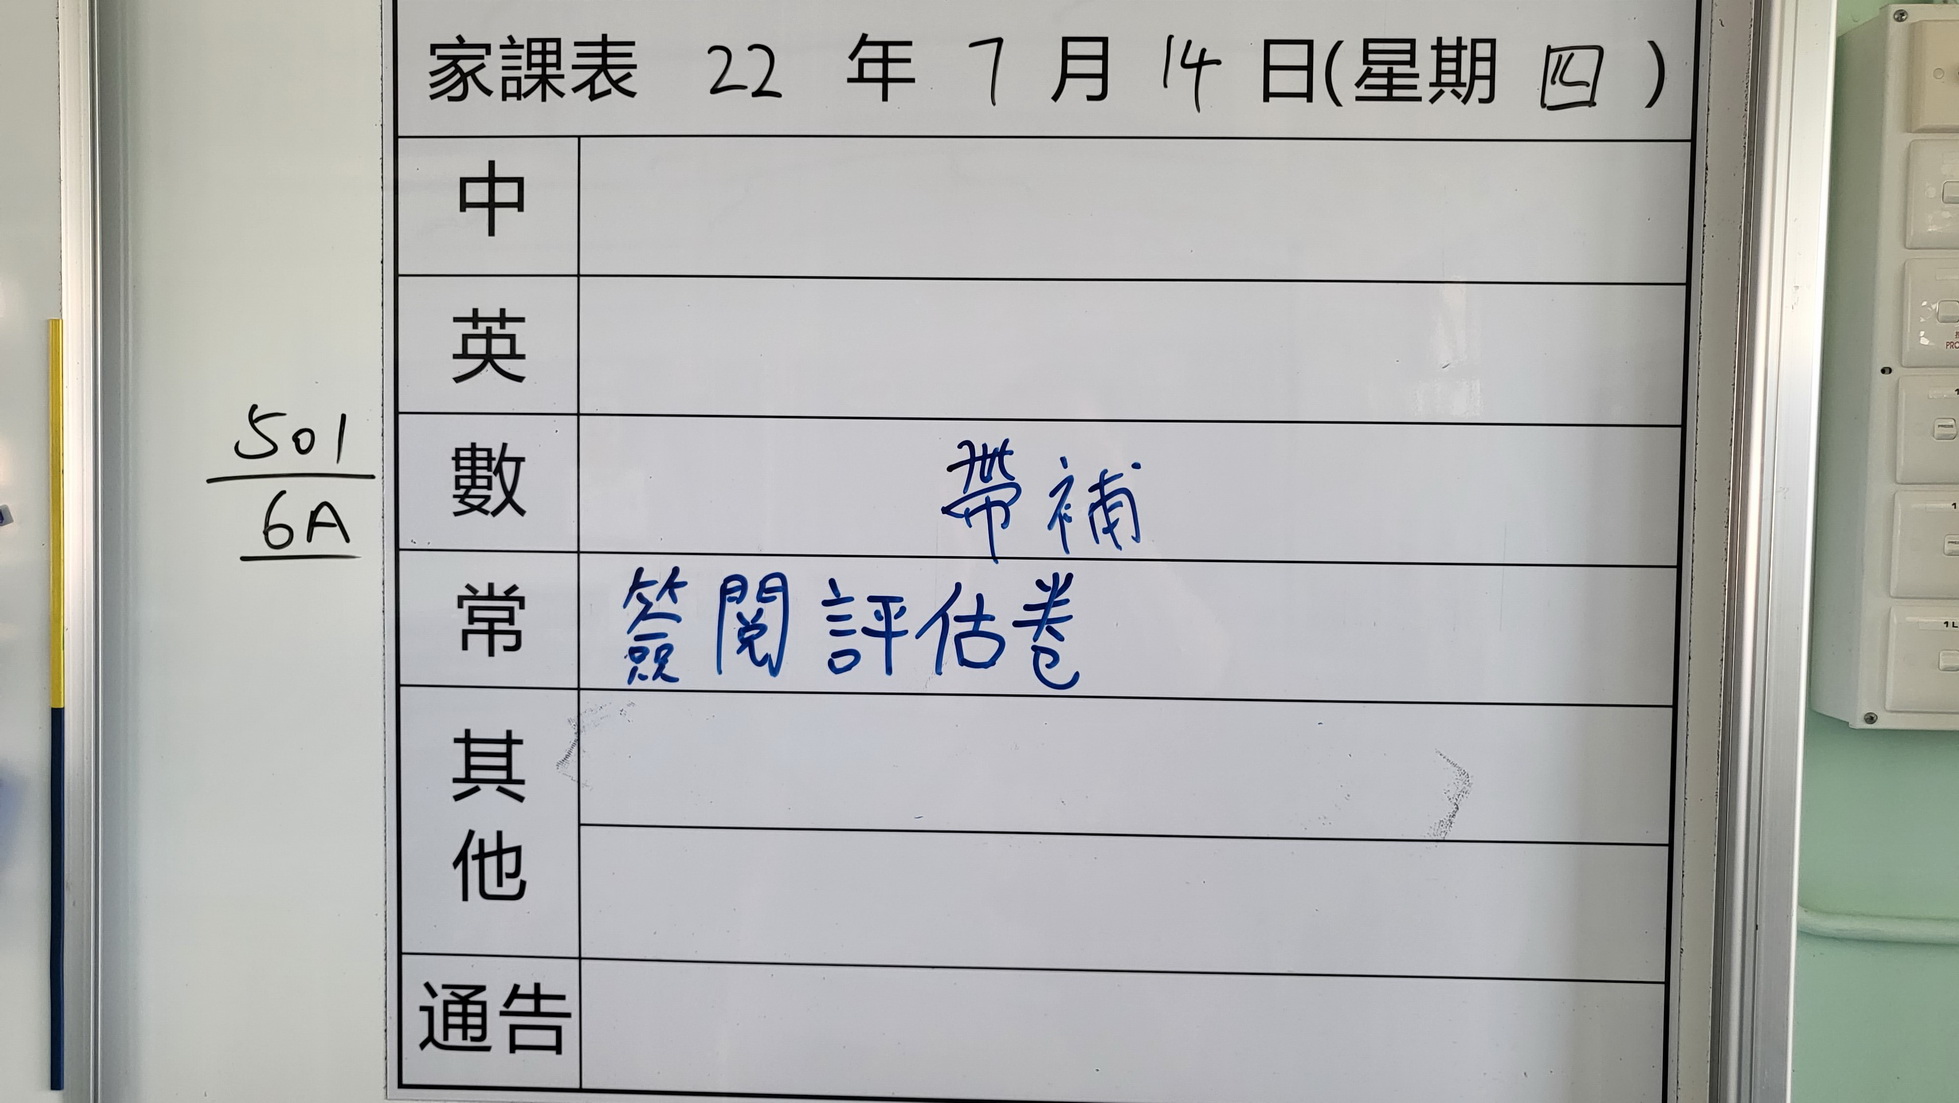 家課表 22 年 7 月 14 日(星期 四 )
中
英
501
6A
數 帶補
常 簽閱評估卷
其他
通告